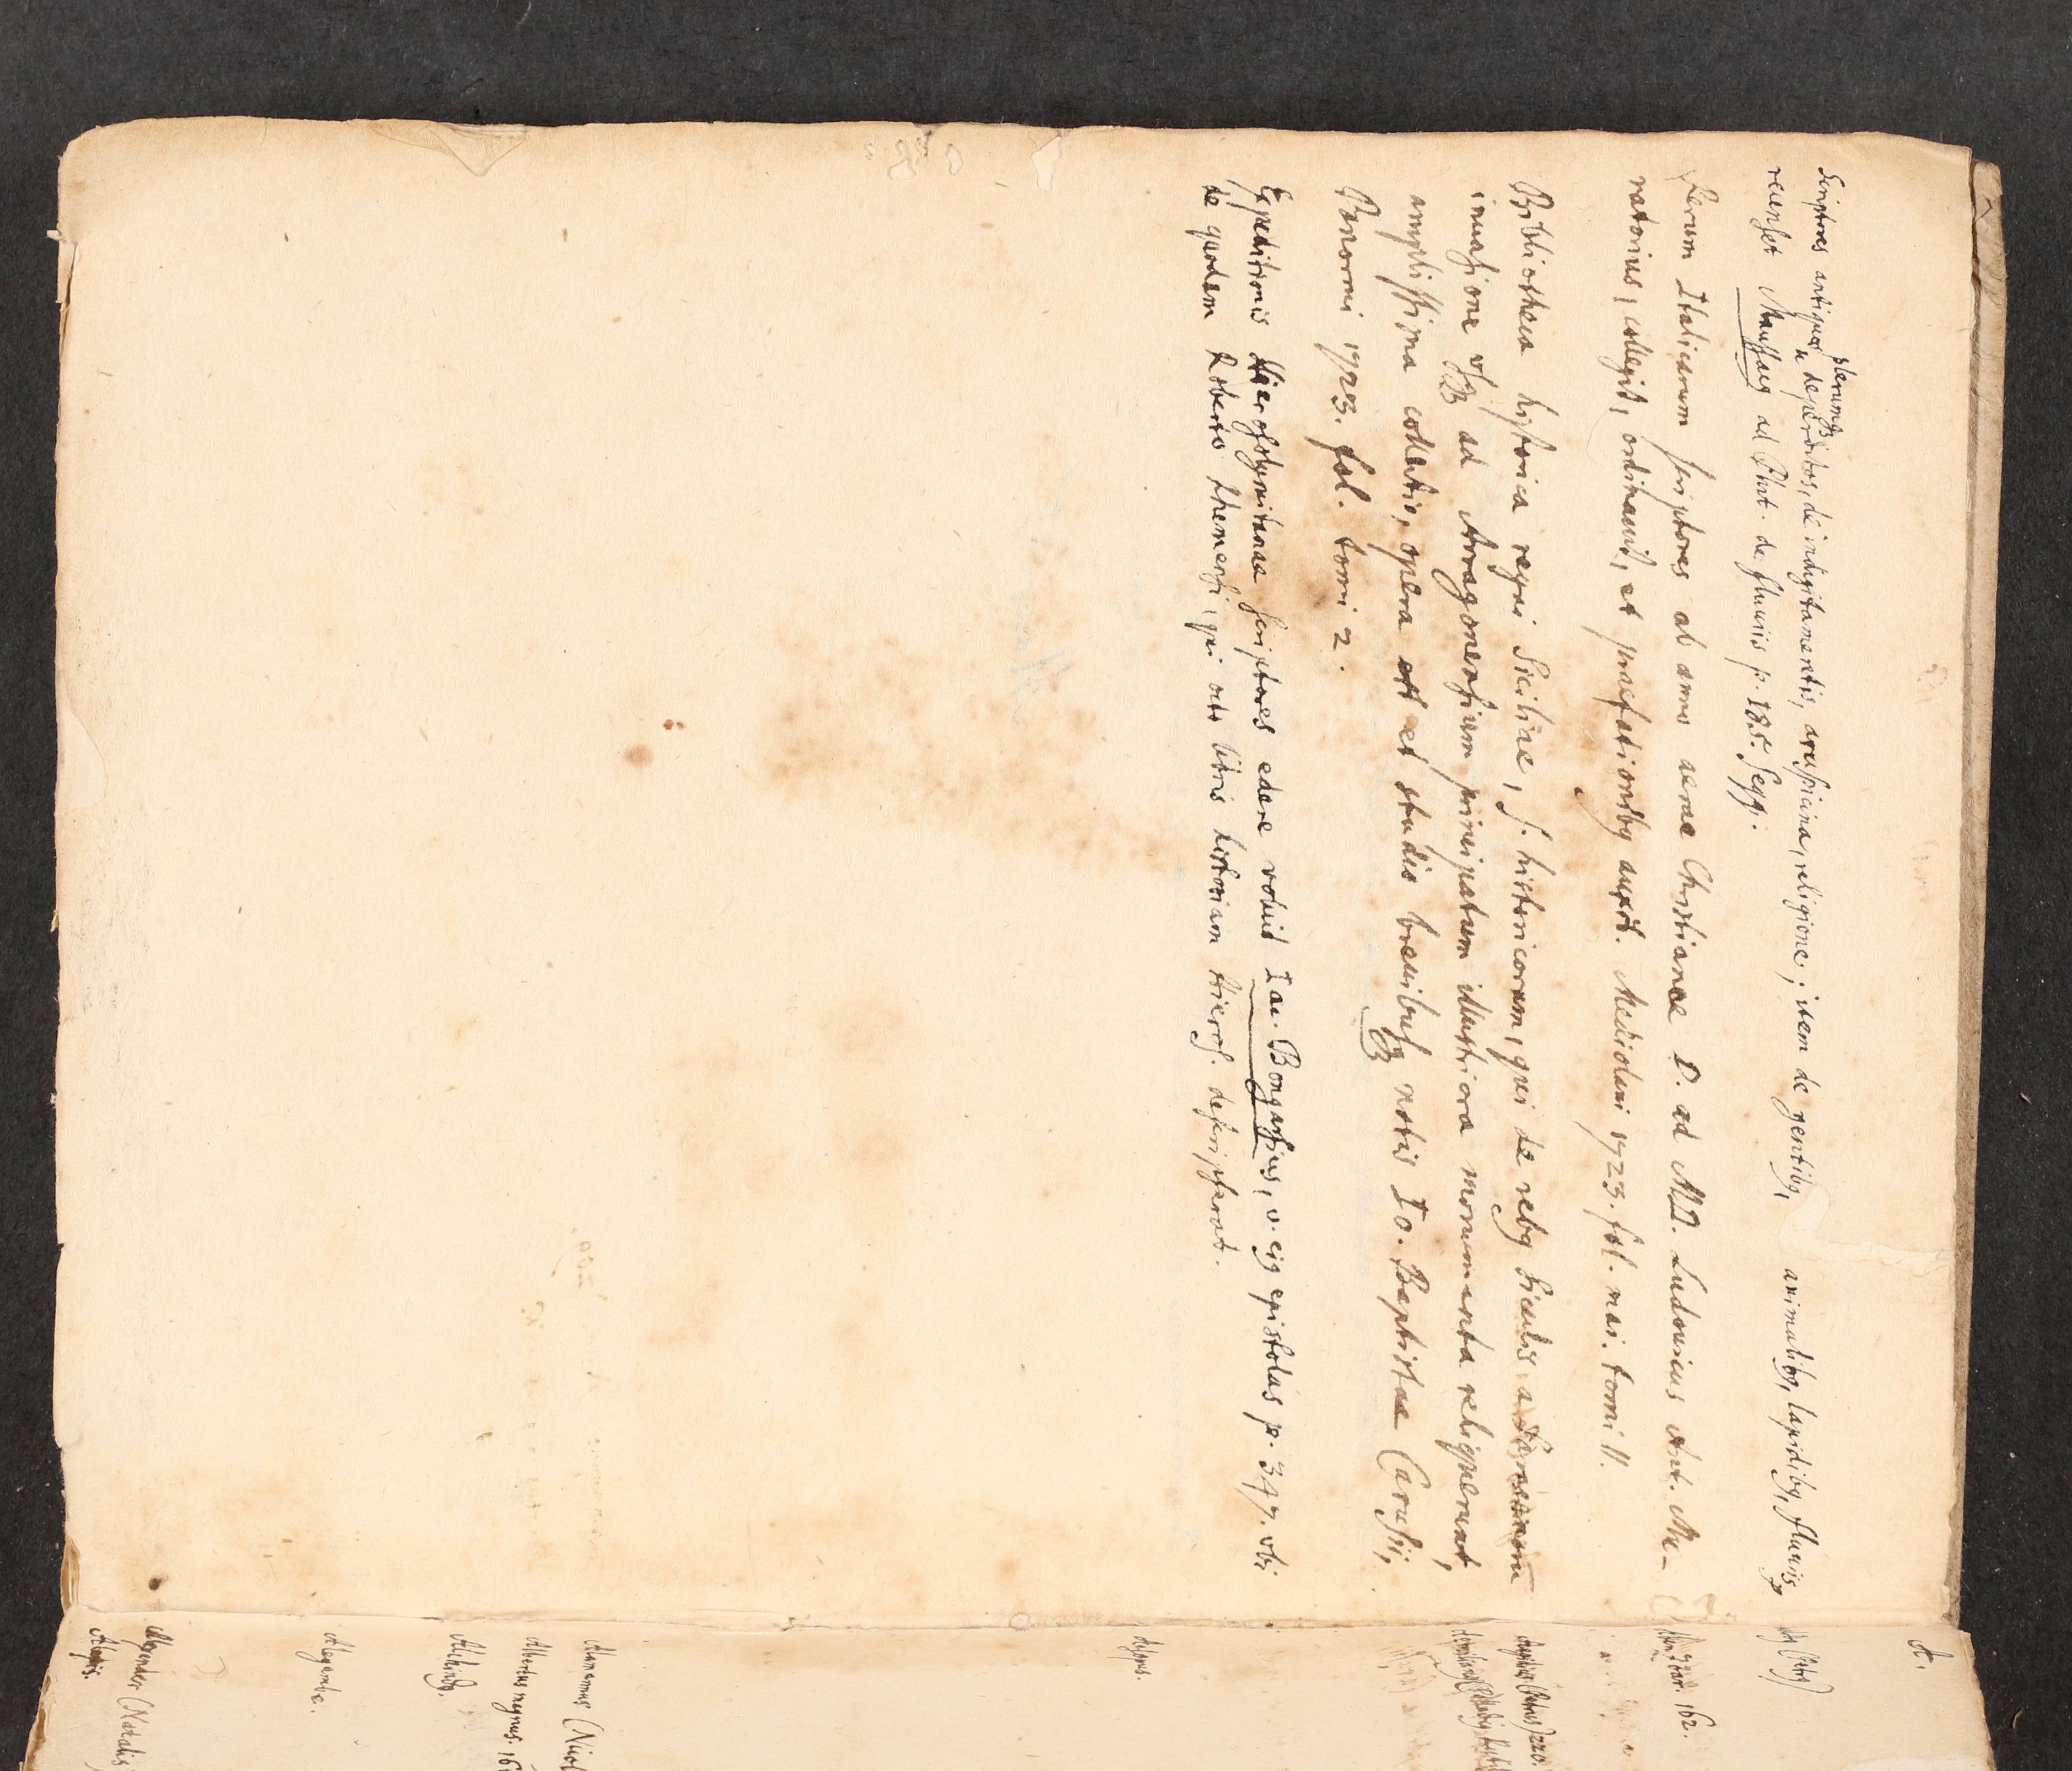 Scriptores antiquos plerumq; deperditos, de indigitamentis, aruspicina, religione; item de gentibq, animalibq, lapidibq, fluuiis
recenset Maussacq ad Plut. de fluuiis p. 185. seqq.
Rerum Italicarum scriptores ab anno aerae Christianae D. ad MD. Ludouicus Ant. Mu-
ratorius, collegit, ordinauit, et praefationibq auxit. Mediolani 1723. fol. mai. tomi 11.
Bibliotheca historica regni Siciliae, s. historicorum, qui de rebq Siculis a Saracenorū
inuasione vsq; ad Aragonensium principatum illustriora monumenta reliquerunt,
amplissima collectio, opera et studio breuibusq; notis Io. Baptistae Carusii,
Panormi 1723. fol. tomi 2.
Expeditionis Hierosolymitanae scriptores edere voluit Iac. Bongarsius, v. eiq epistolas p. 347. vbi
de quodam Roberto Rhemensi, qui octo libris historiam Hieros. descripserat.
A.
162.
220.
Alamannus (Nicol
Albertus magnus. 16
Alchindq.
Alegambe.
Alexander (Natalis)